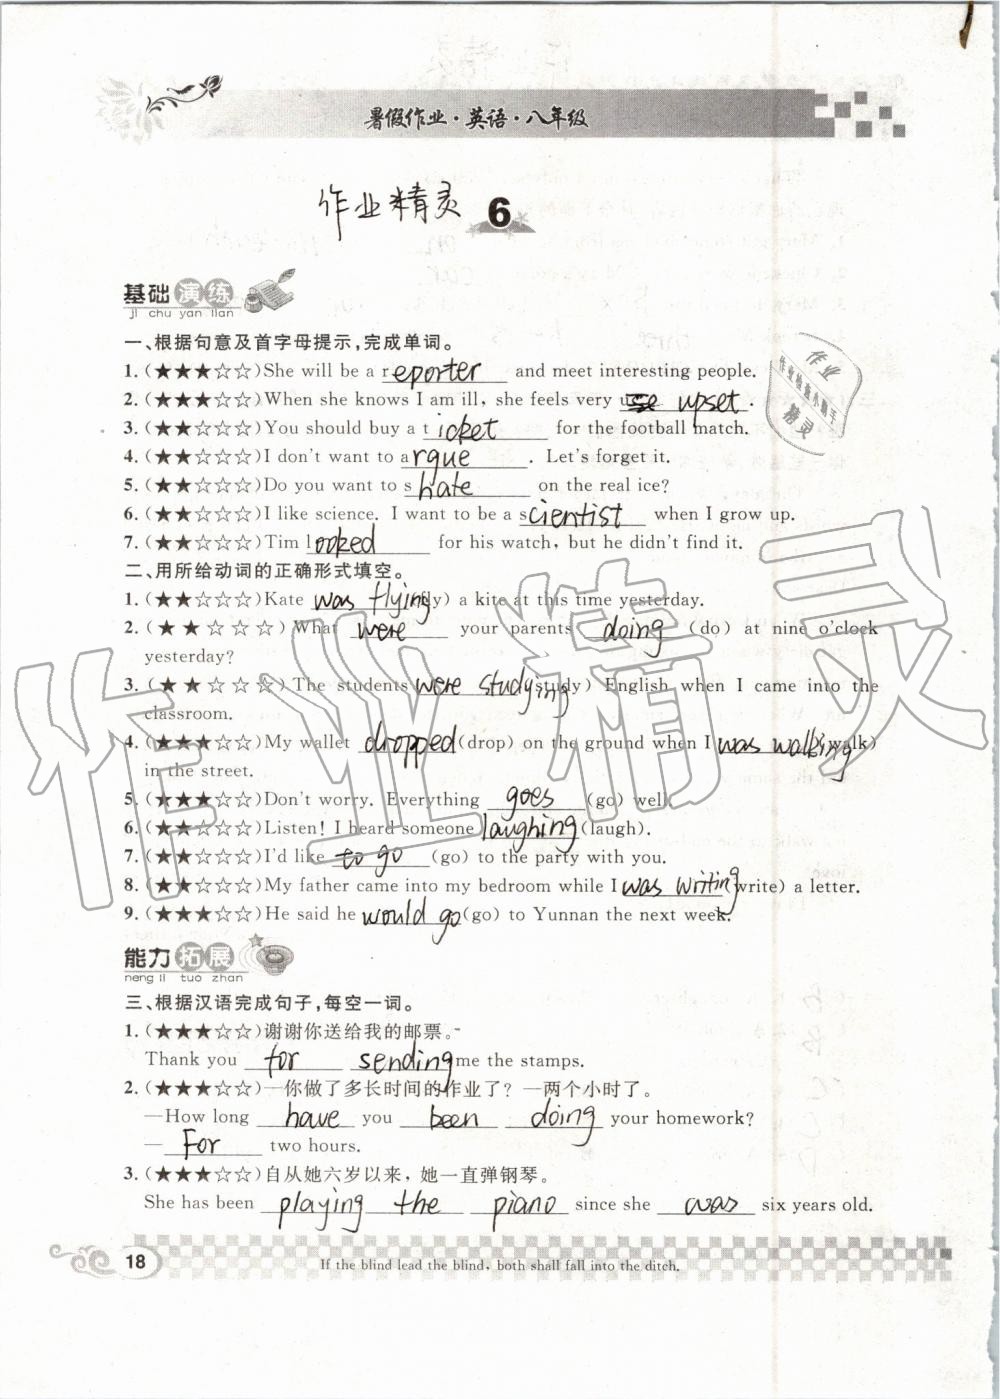 暑假作业·英语·八年级
作业精灵 6
基础演练
ji chu yan lian
一、根据句意及首字母提示,完成单词。
1. (★★★☆☆)She will be a reporter and meet interesting people.
2. (★★★☆☆)When she knows I am ill, she feels very upset.
3. (★★☆☆☆)You should buy a ticket for the football match.
4. (★★☆☆☆)I don't want to argue. Let's forget it.
5. (★★☆☆☆)Do you want to shate on the real ice?
6. (★★☆☆☆)I like science. I want to be a scientist when I grow up.
7. (★★☆☆☆)Tim looked for his watch, but he didn't find it.
二、用所给动词的正确形式填空。
1. (★★☆☆☆)Kate was flying (fly) a kite at this time yesterday.
2. (★★☆☆☆)What were your parents doing (do) at nine o'clock
yesterday?
3. (★★☆☆☆)The students were studying (study) English when I came into the
classroom.
4. (★★★☆☆)My wallet dropped (drop) on the ground when I was walking (walk)
in the street.
5. (★★★☆☆)Don't worry. Everything goes (go) well.
6. (★★☆☆☆)Listen! I heard someone laughing (laugh).
7. (★★☆☆☆)I'd like to go (go) to the party with you.
8. (★★☆☆☆)My father came into my bedroom while I was writing (write) a letter.
9. (★★★☆☆)He said he would go (go) to Yunnan the next week.
能力拓展
neng li tuo zhan
三、根据汉语完成句子,每空一词。
1. (★★★☆☆)谢谢你送给我的邮票。
Thank you for sending me the stamps.
2. (★★★☆☆)—你做了多长时间的作业了? —两个小时了。
—How long have you been doing your homework?
— For two hours.
3. (★★★☆☆)自从她六岁以来,她一直弹钢琴。
She has been playing the piano since she was six years old.
18
If the blind lead the blind, both shall fall into the ditch.
作业
作业检查小助手
精灵
作业精灵